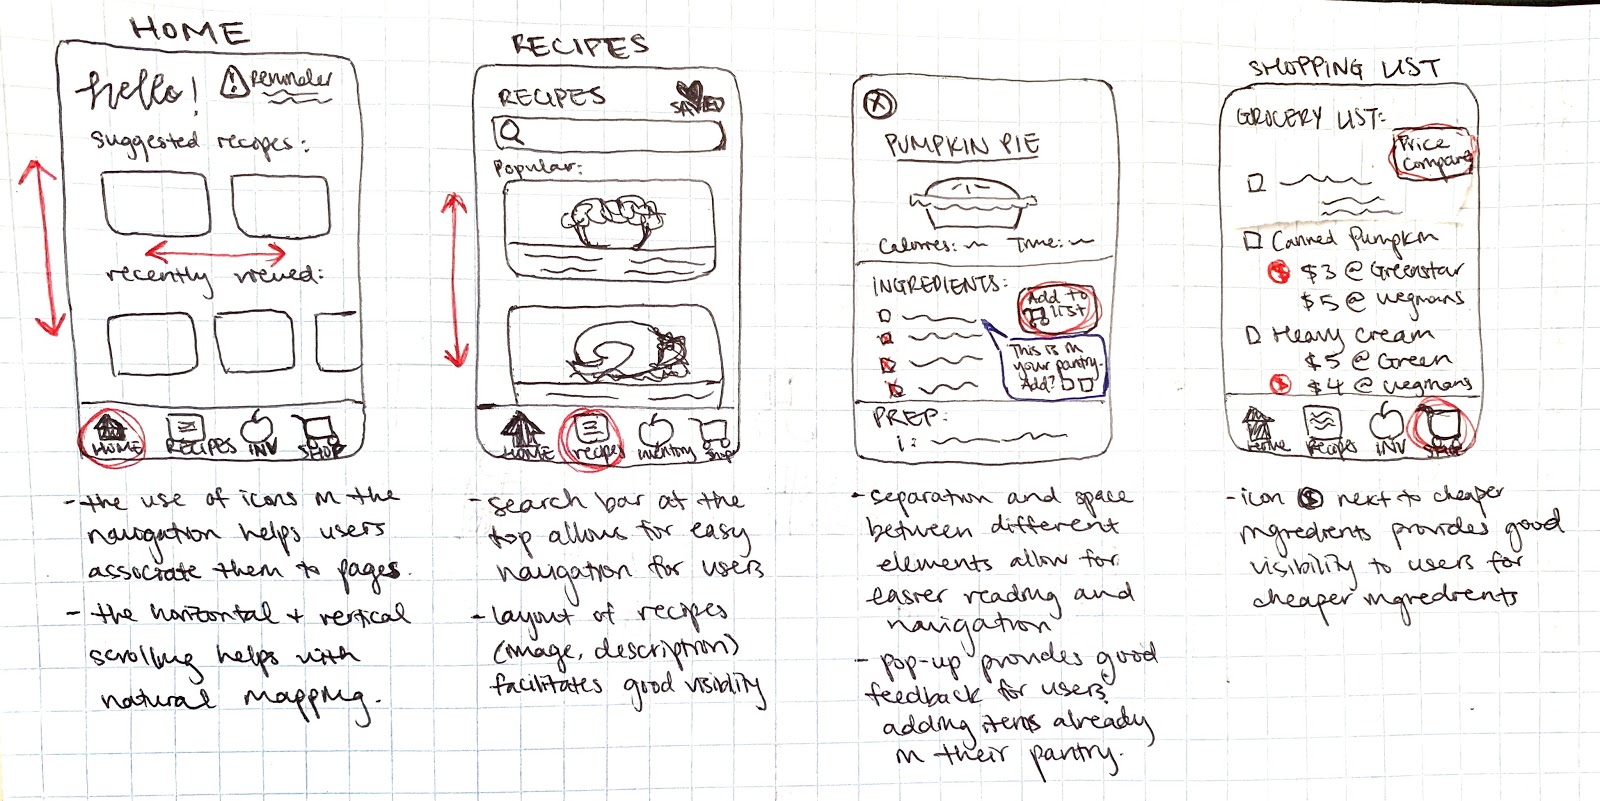 HOME
hello!
Reminder
suggested recipes:
recently viewed:
HOME
RECIPES
INV
SHOP
- the use of icons in the
navigation helps users
associate them to pages.
- the horizontal + vertical
scrolling helps with
natural mapping.
RECIPES
RECIPES
SAVED
Popular:
HOME
recipes
inventory
shop
- search bar at the
top allows for easy
navigation for users
- layout of recipes
(image, description)
facilitates good visibility
X
PUMPKIN PIE
Calories:
Time:
INGREDIENTS:
Add to
list
This is in
your pantry.
Add?
PREP:
1:
- separation and space
between different
elements allow for
easier reading and
navigation
- pop-up provides good
feedback for users
adding items already
in their pantry.
SHOPPING LIST
GROCERY LIST:
Price
Compare
Canned Pumpkin
$ $3 @ Greenstar
$5 @ Wegmans
Heavy Cream
$5 @ Green
$ $4 @ Wegmans
Home
Recipes
INV
- icon $ next to cheaper
ingredients provides good
visibility to users for
cheaper ingredients